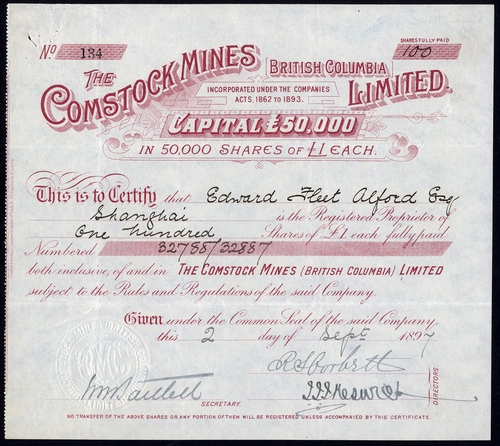 No 134
SHARES FULLY PAID
100
THE COMSTOCK MINES
BRITISH COLUMBIA
LIMITED.
INCORPORATED UNDER THE COMPANIES
ACTS, 1862 TO 1893.
CAPITAL £50,000
IN 50,000 SHARES OF £1 EACH.
This is to Certify that Edward Fleet Alford Esq
Shanghai is the Registered Proprietor of
One hundred Shares of £1 each fully paid
Numbered 32788/32887
both inclusive, of and in THE COMSTOCK MINES (BRITISH COLUMBIA) LIMITED
subject to the Rules and Regulations of the said Company.
Given under the Common Seal of the said Company,
this 2 day of Sept 1897
SECRETARY.
DIRECTORS.
NO TRANSFER OF THE ABOVE SHARES OR ANY PORTION OF THEM WILL BE REGISTERED UNLESS ACCOMPANIED BY THIS CERTIFICATE.